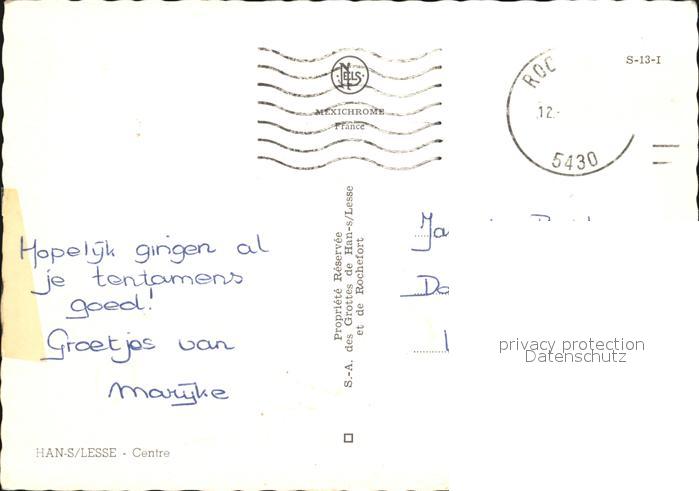 S-13-I
NELS
MEXICHROME
France
ROC
12.
5430
Hopelijk gingen al
je tentamens
goed!
Groetjes van
Marijke
Propriété Réservée
S.-A. des Grottes de Han-s/Lesse
et de Rochefort
Ja
Do
privacy protection
Datenschutz
HAN-S/LESSE - Centre